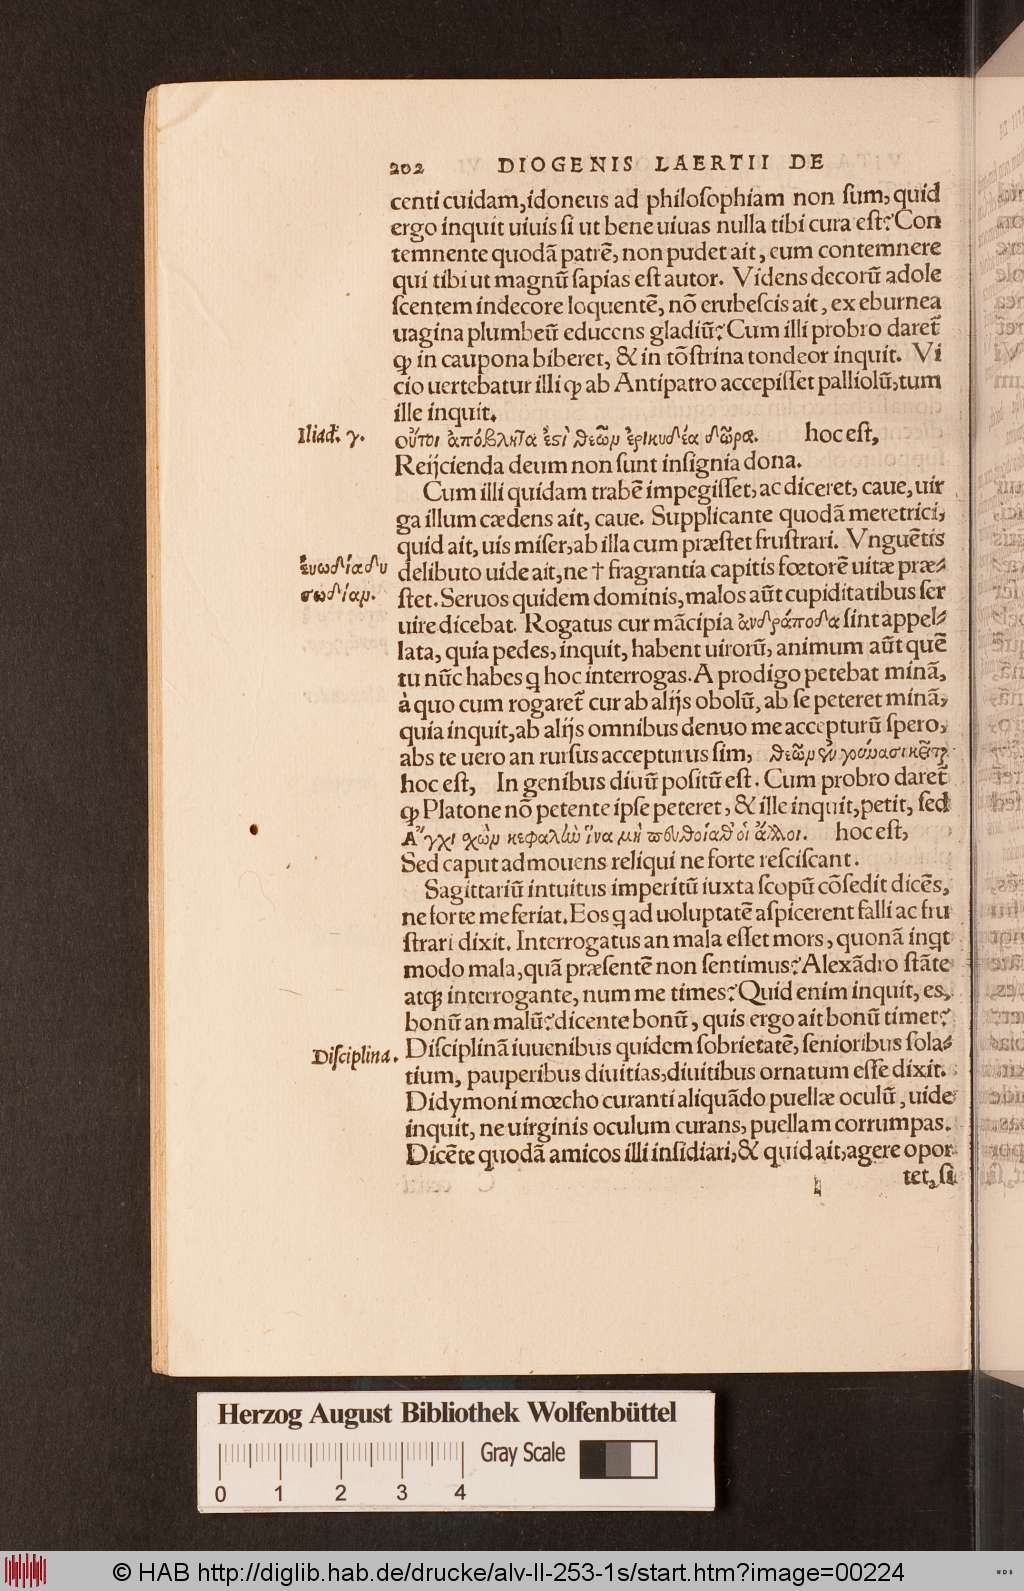 202 DIOGENIS LAERTII DE
centi cuidam, idoneus ad philosophiam non sum, quid
ergo inquit uiuis si ut bene uiuas nulla tibi cura est? Con
temnente quodã patrẽ, non pudet ait, eum contemnere
qui tibi ut magnũ sapias est autor. Videns decorũ adole
scentem indecore loquentẽ, nõ erubescis ait, ex eburnea
uagina plumbeũ educens gladiũ? Cum illi probro daret̃
ꝙ in caupona biberet, & in tõstrina tondeor inquit. Vi
cio uertebatur illi ꝙ ab Antipatro accepisset palliolũ, tum
ille inquit.
Iliad. γ.
οὔτοι ἀπόβλητα ἐστὶ θεῶν ἐρικυδέα δῶρα. hoc est,
Reijcienda deum non sunt insignia dona.
Cum illi quidam trabẽ impegisset, ac diceret, caue, uir
ga illum cædens ait, caue. Supplicante quodã meretrici,
quid ait, uis miser, ab illa cum præstet frustrari. Vnguẽtis
εὐωδία δυ
σωδίαν.
delibuto uide ait, ne † fragrantia capitis fœtorẽ uitæ præ-
stet. Seruos quidem dominis, malos aũt cupiditatibus ser
uire dicebat. Rogatus cur mãcipia ἀνδράποδα sint appel-
lata, quia pedes, inquit, habent uirorũ, animum aũt quẽ
tu nũc habes ꝗ hoc interrogas. A prodigo petebat minã,
à quo cum rogaret̃ cur ab alijs obolũ, ab se peteret minã,
quia inquit, ab alijs omnibus denuo me accepturũ spero,
abs te uero an rursus accepturus sim, θεῶν ἐν γούνασι κεῖται.
hoc est, In genibus diuũ positũ est. Cum probro daret̃
ꝙ Platone nõ petente ipse peteret, & ille inquit, petit, sed
Ἄγχι σχὼν κεφαλὴν ἵνα μὴ πευθοίαθ' οἱ ἄλλοι. hoc est,
Sed caput admouens reliqui ne forte resciscant.
Sagittariũ intuitus imperitũ iuxta scopũ cõsedit dicẽs,
ne forte me feriat. Eos ꝗ ad uoluptatẽ aspicerent falli ac fru
strari dixit. Interrogatus an mala esset mors, quonã inꝗt
modo mala, quã præsentẽ non sentimus? Alexãdro stãte
atꝗ interrogante, num me times? Quid enim inquit, es,
bonũ an malũ? dicente bonũ, quis ergo ait bonũ timet?
Disciplina.
Disciplinã iuuenibus quidem sobrietatẽ, senioribus sola-
tium, pauperibus diuitias, diuitibus ornatum esse dixit.
Didymoni mœcho curanti aliquãdo puellæ oculũ, uide
inquit, ne uirginis oculum curans, puellam corrumpas.
Dicẽte quodã amicos illi insidiari, & quid ait, agere opor
tet, si
Herzog August Bibliothek Wolfenbüttel
Gray Scale
0 1 2 3 4
© HAB http://diglib.hab.de/drucke/alv-ll-253-1s/start.htm?image=00224